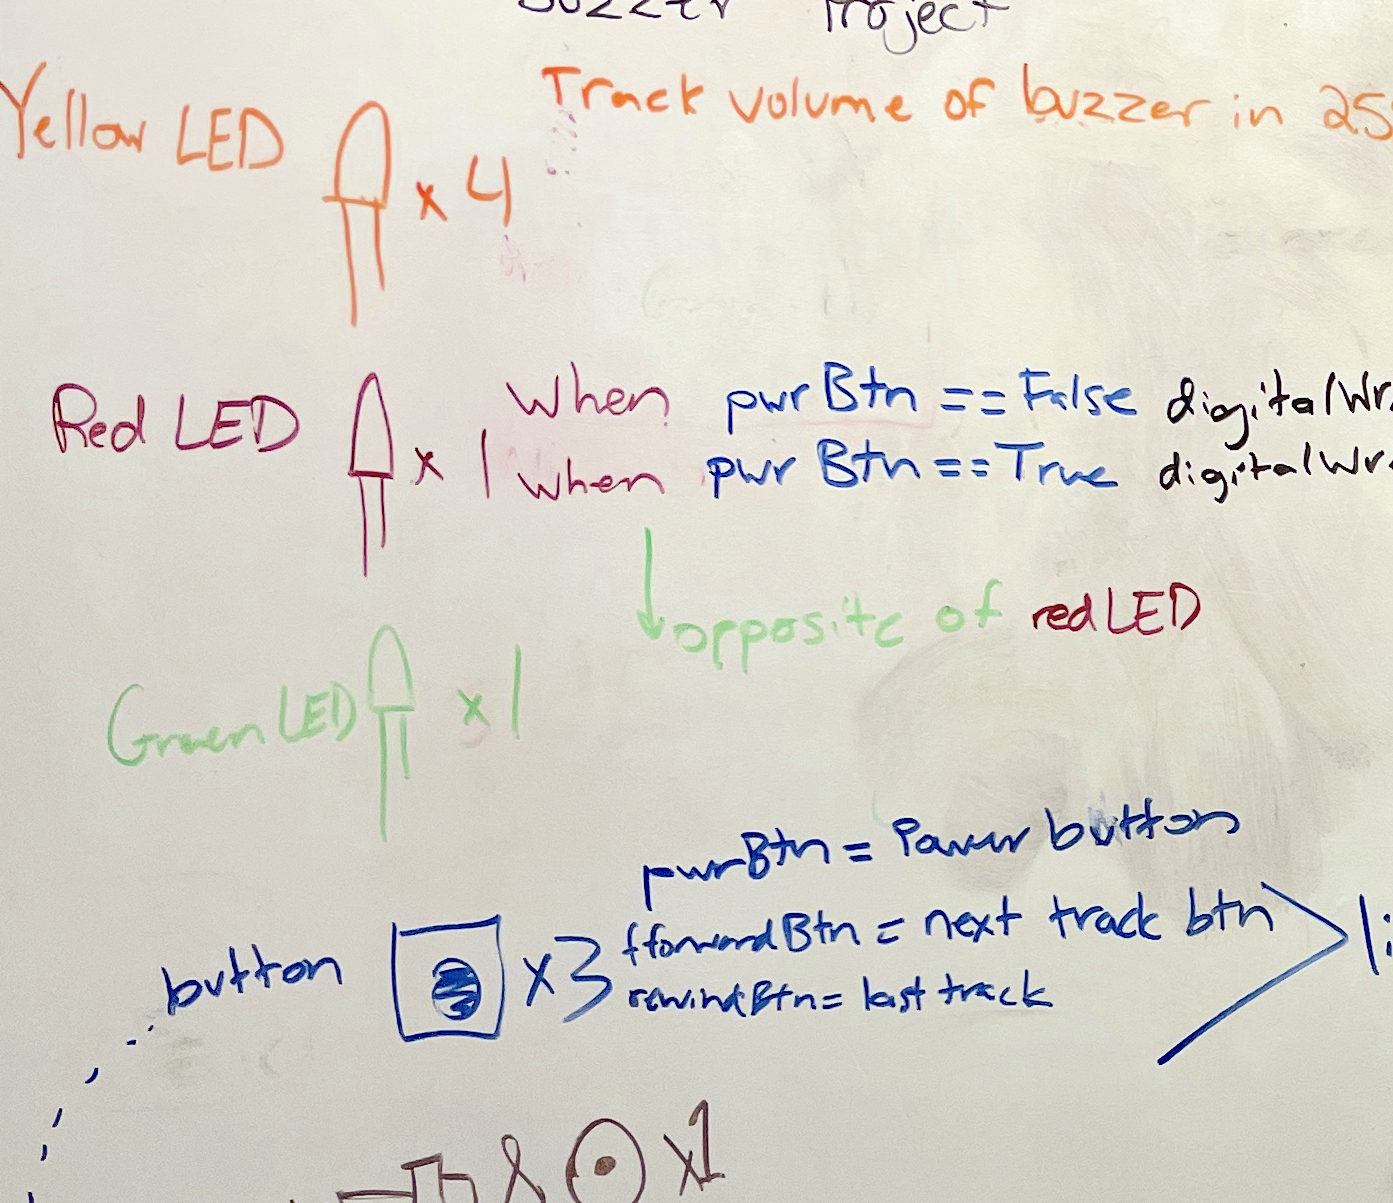 Buzzer Project
Yellow LED x 4 Track volume of buzzer in 25
Red LED x 1 when pwrBtn == False digitalWr
when pwr Btn == True digitalWr
opposite of red LED
Green LED x 1
pwrBtn = Power button
button x3 fforwardBtn = next track btn
rewindBtn = last track
& x1